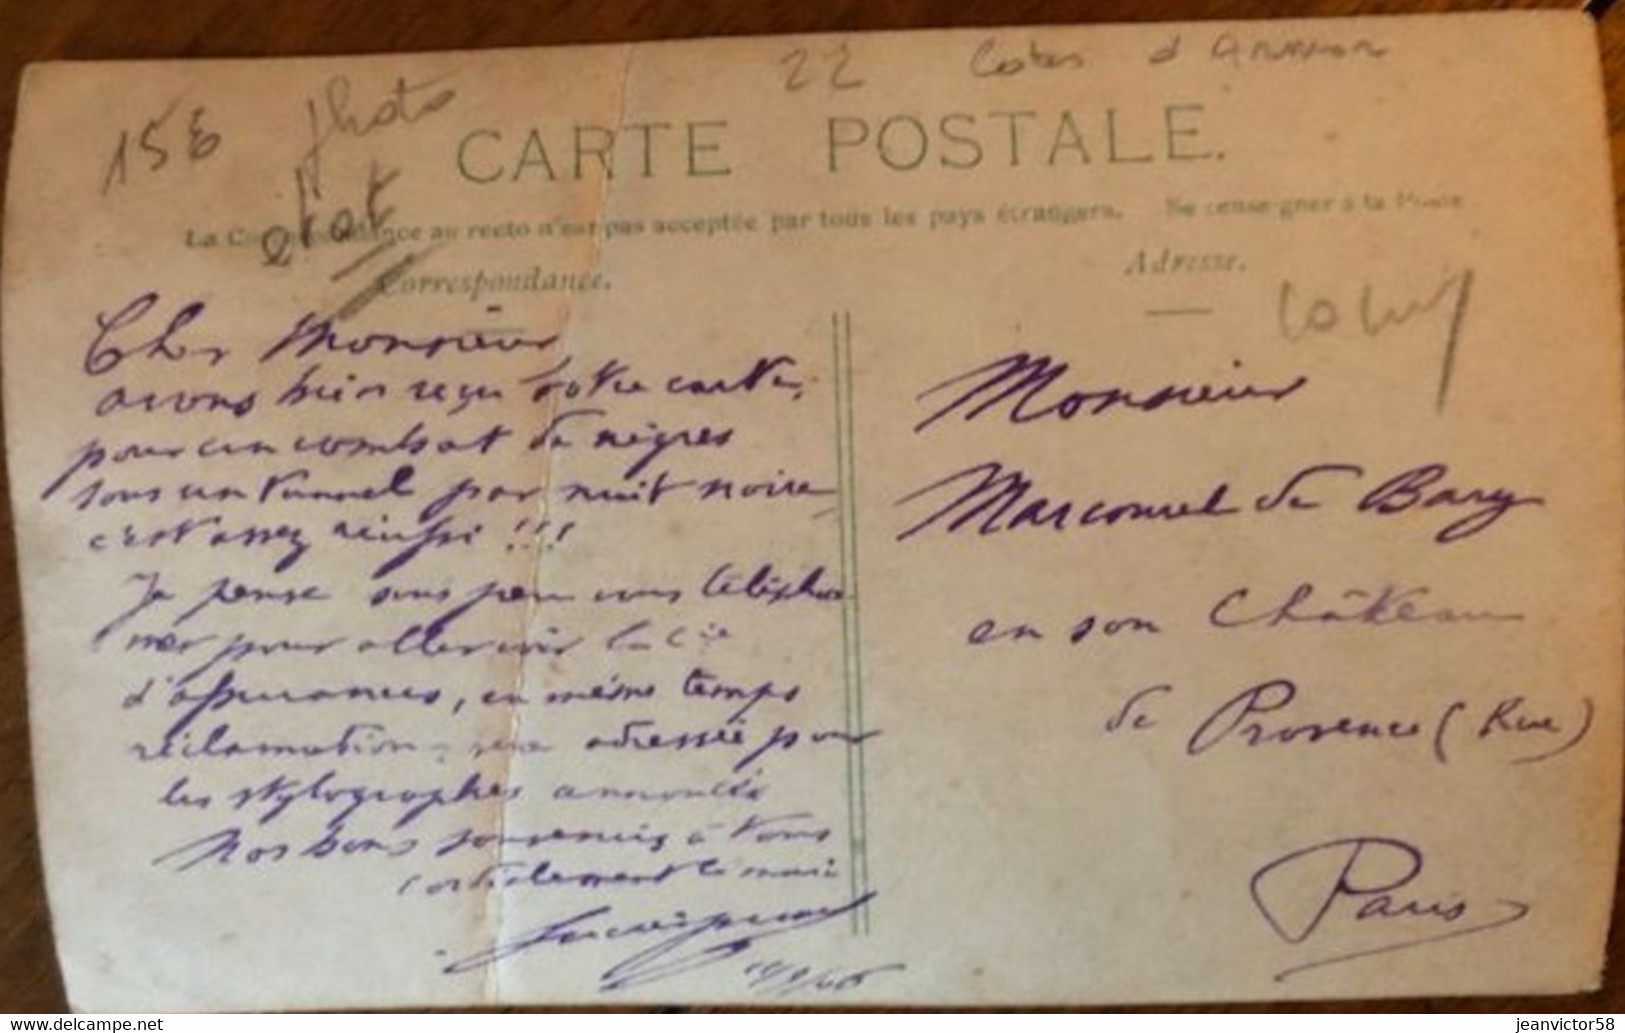 22 Cotes d'Armor
15€ photo
etat
CARTE POSTALE.
La Correspondance au recto n'est pas acceptée par tous les pays étrangers. Se renseigner à la Poste
Correspondance.
Adresse.
Cher Monsieur
avons bien reçu votre carte,
pour un combat de nègres
sous un tunnel par nuit noire
c'est assez réussi !!!
Je pense sous peu vous télépho
ner pour aller voir la Cie
d'assurances, en même temps
réclamation sera adressée pour
les stylographes annoncés
Nos bons souvenirs à Vous
cordialement la main
Monsieur
Marcounel de Bary
en son Château
de Provence (Rue)
Paris
jeanvictor58